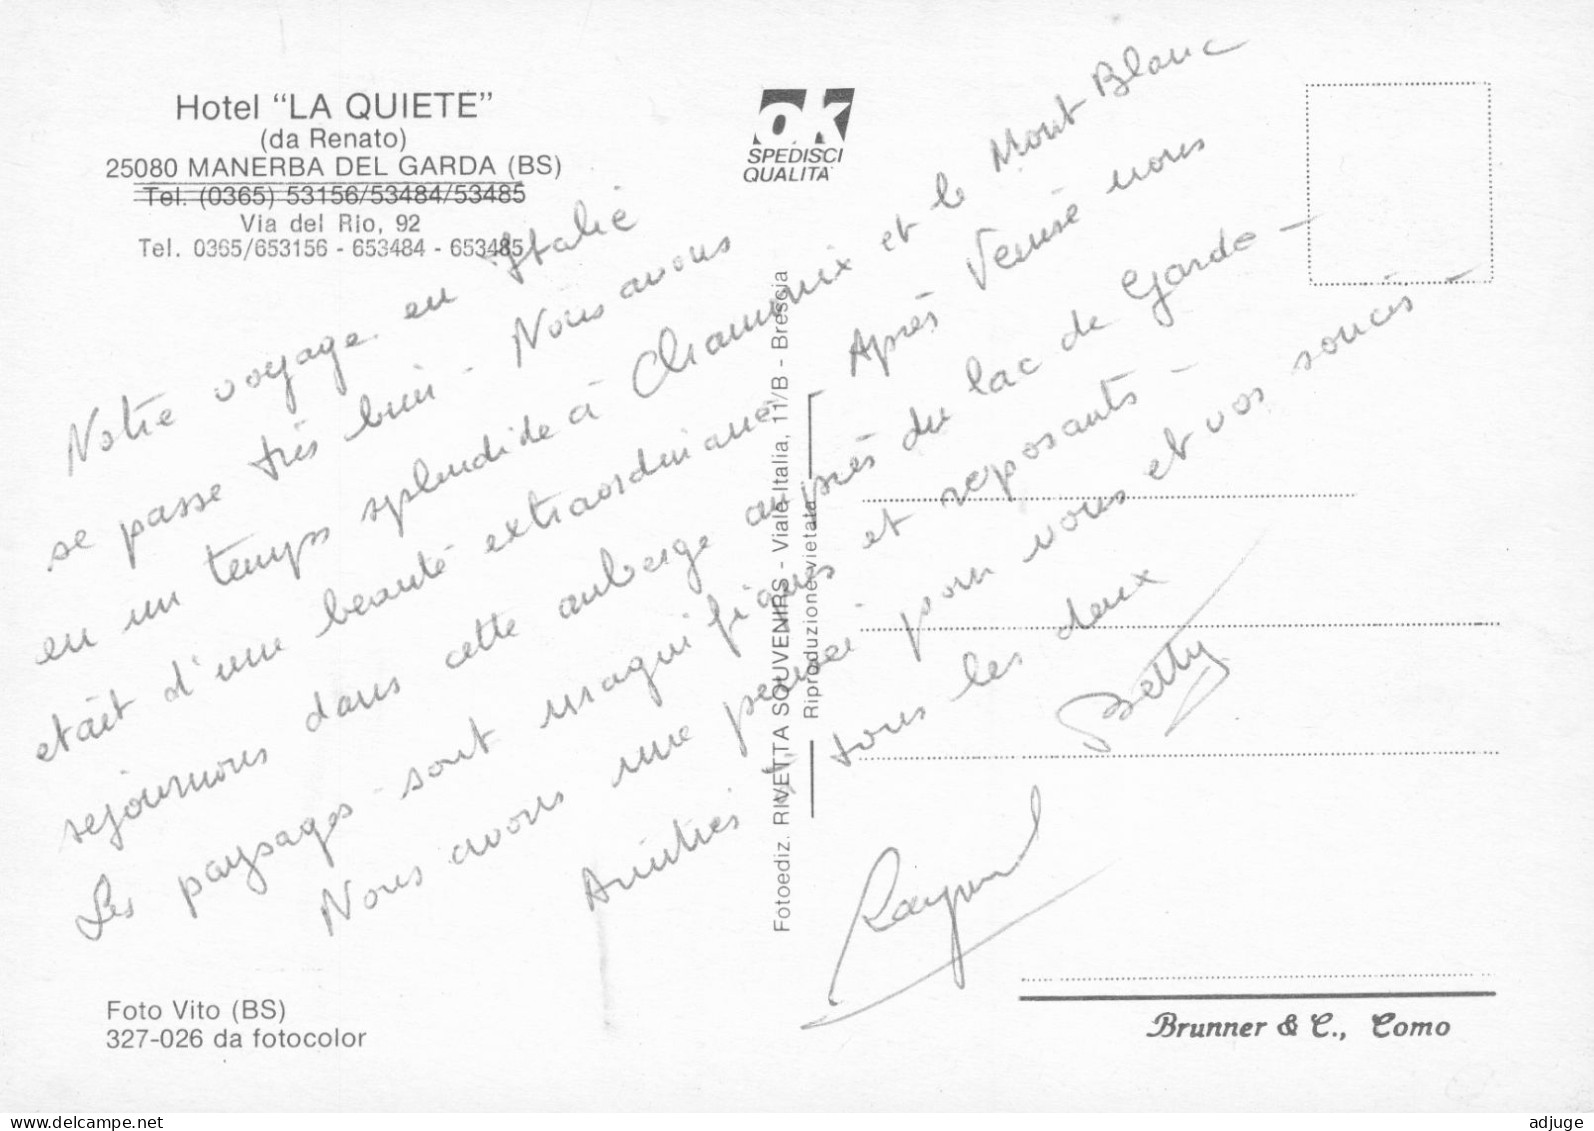 Hotel "LA QUIETE"
(da Renato)
25080 MANERBA DEL GARDA (BS)
Tel. (0365) 53156/53484/53485
Via del Rio, 92
Tel. 0365/653156 - 653484 - 653485
ok
SPEDISCI
QUALITA'
Notre voyage en Italie
se passe très bien - Nous avons
eu un temps splendide à Chamonix et le Mont Blanc
était d'une beauté extraordinaire - Après Venise nous
séjournons dans cette auberge auprès du lac de Garde -
Les paysages sont magnifiques et reposants -
Nous avons une pensée pour vous et vos soucis -
Amitiés à tous les deux
Betty
Raymond
Fotoediz. RIVETTA SOUVENIRS - Viale Italia, 11/B - Brescia
Riproduzione vietata
Foto Vito (BS)
327-026 da fotocolor
Brunner & C., Como
delcampe.net
adjuge